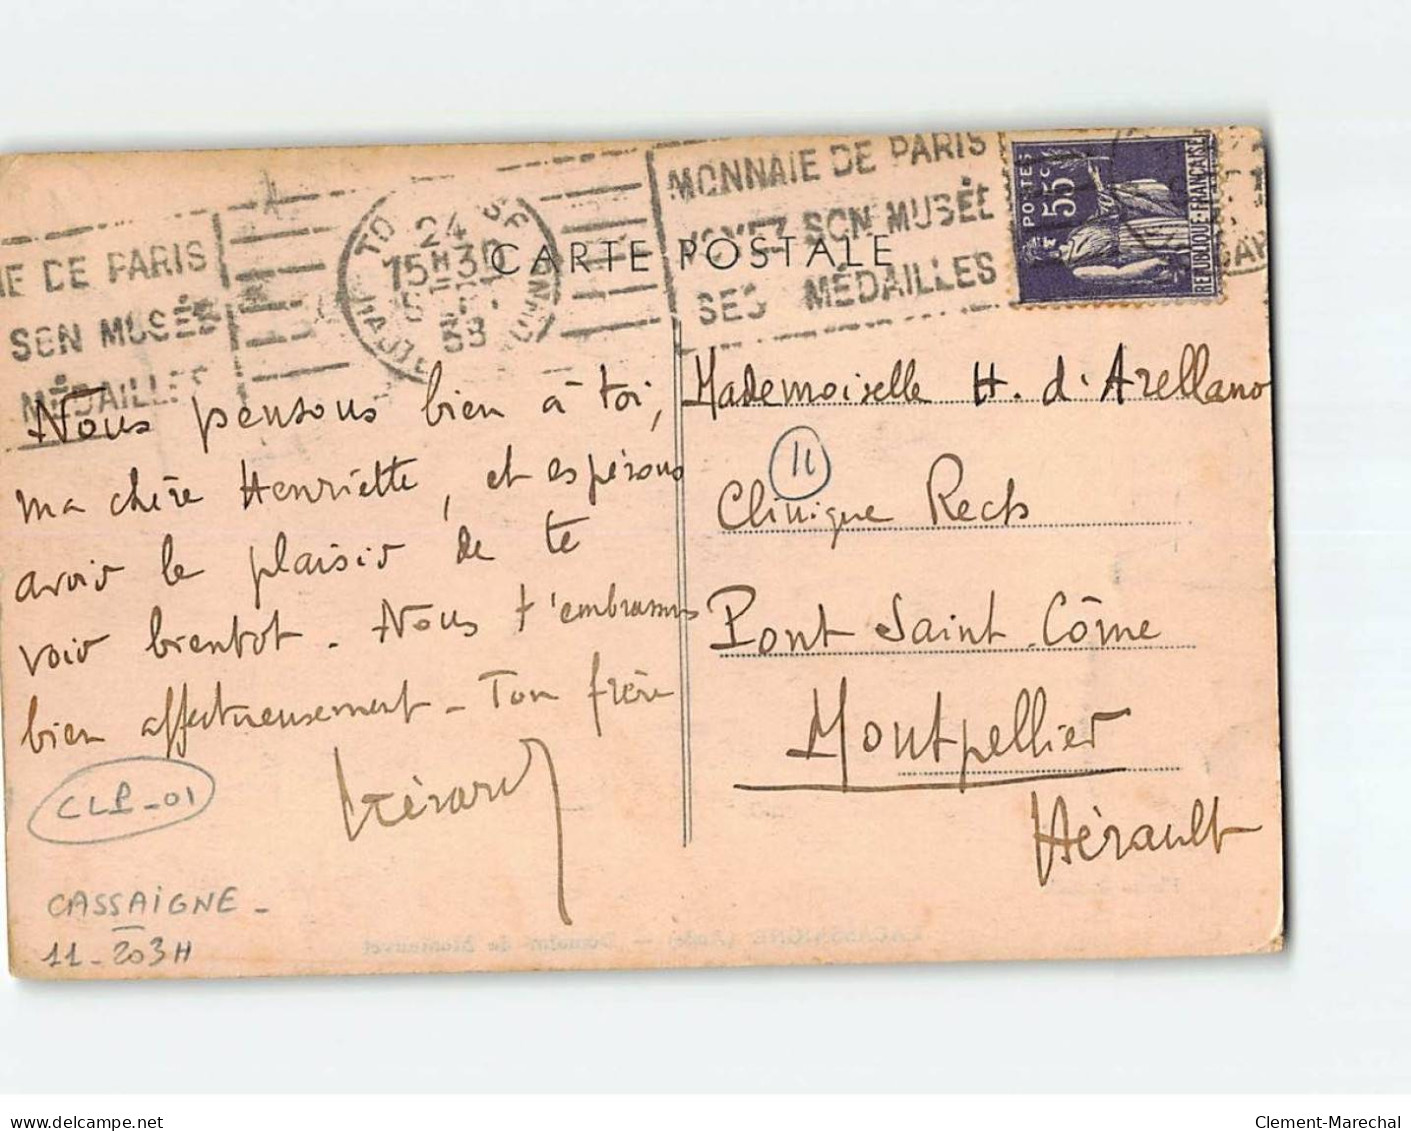 MONNAIE DE PARIS
VOYEZ SON MUSÉE
SES MÉDAILLES
IE DE PARIS
SON MUSÉE
MÉDAILLES
24
15H30
38
POSTES
55c
REPUBLIQUE FRANÇAISE
CARTE POSTALE
Nous pensons bien à toi,
ma chère Henriette, et espérons
avoir le plaisir de te
voir bientot. Nous t'embrassons
bien affectueusement - Ton frère
Gérard
Mademoiselle H. d'Arellano
11
Clinique Rech
Pont Saint Côme
Montpellier
Hérault
CLP-01
CASSAIGNE -
11-203H
LACASSAIGNE (Aude) - Domaine de Montauvet
delcampe.net
Clement-Marechal